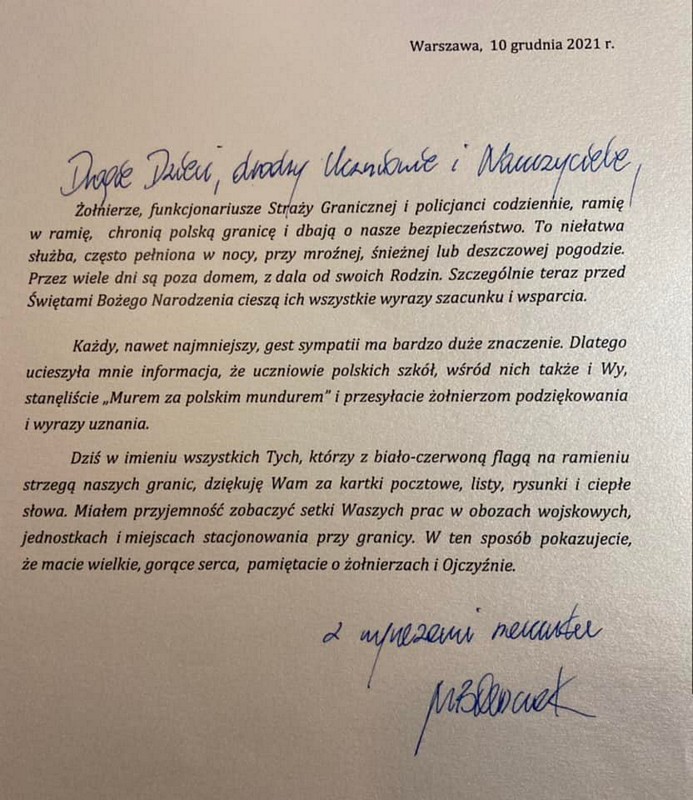 Warszawa, 10 grudnia 2021 r.
Drogie Dzieci, drodzy Uczniowie i Nauczyciele,
Żołnierze, funkcjonariusze Straży Granicznej i policjanci codziennie, ramię
w ramię, chronią polską granicę i dbają o nasze bezpieczeństwo. To niełatwa
służba, często pełniona w nocy, przy mroźnej, śnieżnej lub deszczowej pogodzie.
Przez wiele dni są poza domem, z dala od swoich Rodzin. Szczególnie teraz przed
Świętami Bożego Narodzenia cieszą ich wszystkie wyrazy szacunku i wsparcia.
Każdy, nawet najmniejszy, gest sympatii ma bardzo duże znaczenie. Dlatego
ucieszyła mnie informacja, że uczniowie polskich szkół, wśród nich także i Wy,
stanęliście „Murem za polskim mundurem” i przesyłacie żołnierzom podziękowania
i wyrazy uznania.
Dziś w imieniu wszystkich Tych, którzy z biało-czerwoną flagą na ramieniu
strzegą naszych granic, dziękuję Wam za kartki pocztowe, listy, rysunki i ciepłe
słowa. Miałem przyjemność zobaczyć setki Waszych prac w obozach wojskowych,
jednostkach i miejscach stacjonowania przy granicy. W ten sposób pokazujecie,
że macie wielkie, gorące serca, pamiętacie o żołnierzach i Ojczyźnie.
z wyrazami szacunku